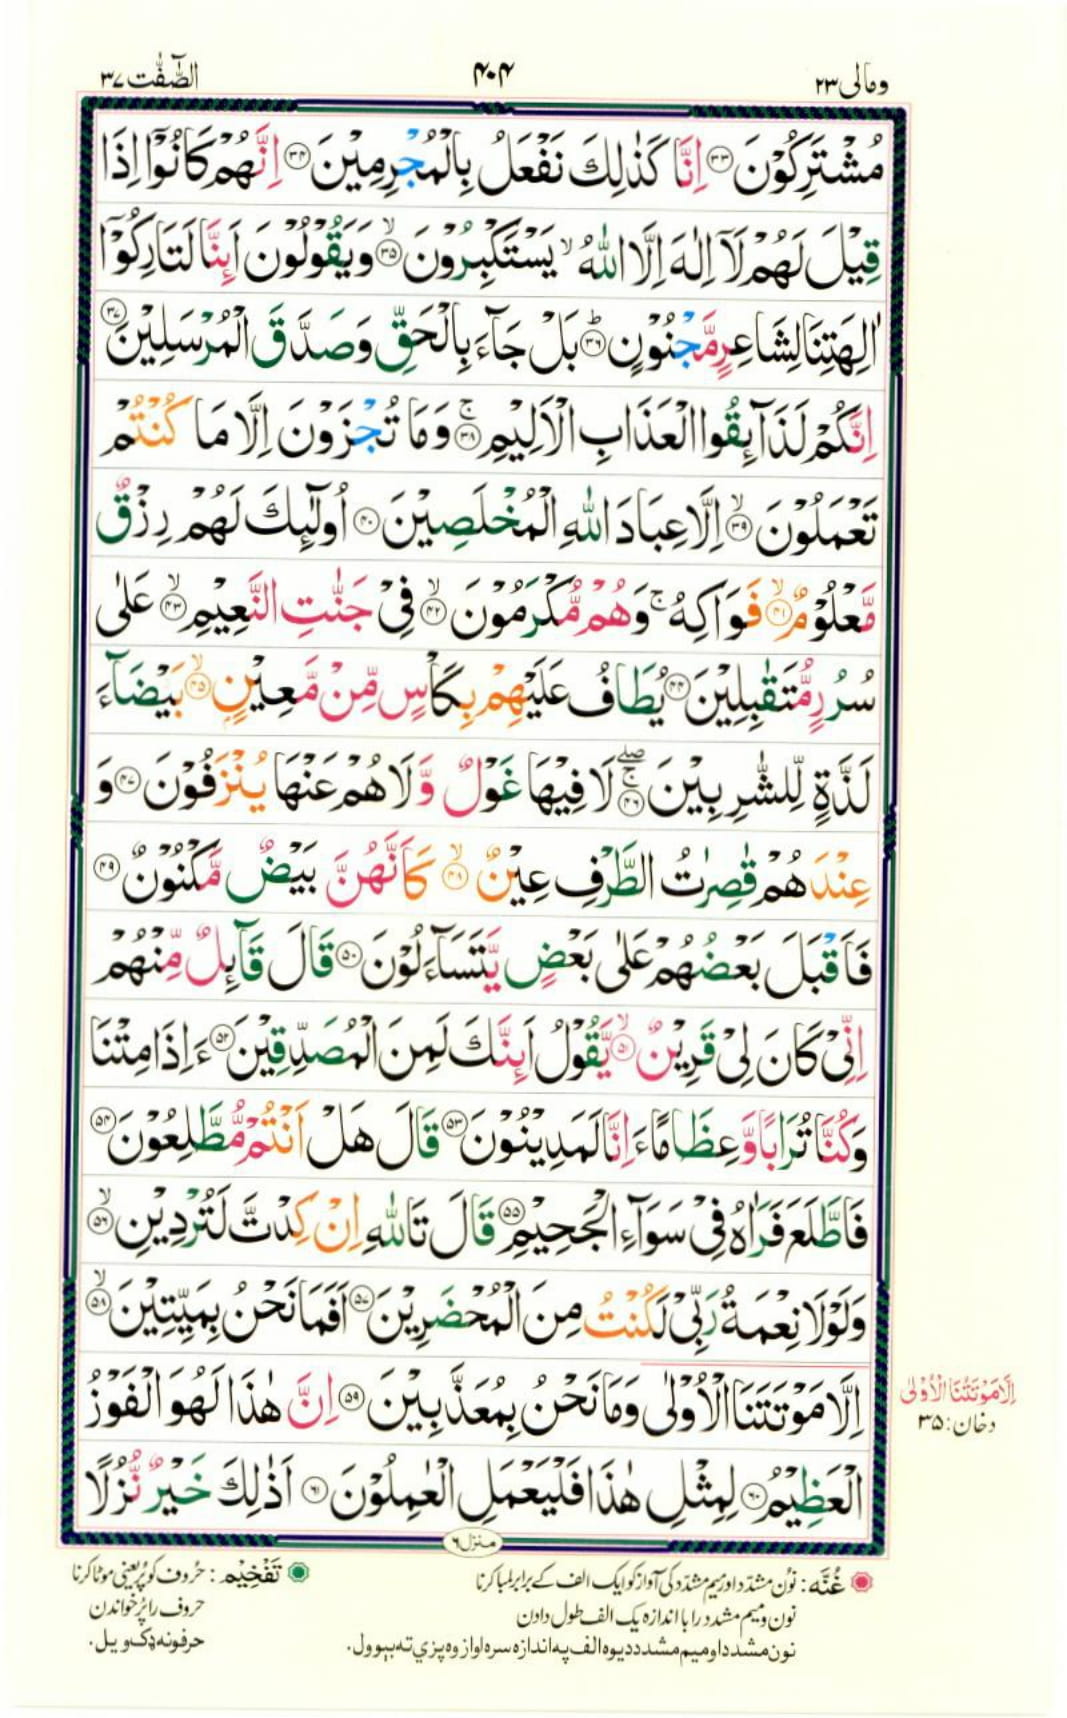 ومالی ۲۳
۴۰۴
الصّٰٓفّٰت ۳۷
مُشْتَرِكُوْنَ ﴿۳۳﴾ اِنَّا كَذٰلِكَ نَفْعَلُ بِالْمُجْرِمِيْنَ ﴿۳۴﴾ اِنَّهُمْ كَانُوْۤا اِذَا
قِيْلَ لَهُمْ لَاۤ اِلٰهَ اِلَّا اللّٰهُ ۙ يَسْتَكْبِرُوْنَ ﴿۳۵﴾ۙ وَيَقُوْلُوْنَ اَىِٕنَّا لَتَارِكُوْۤا
اٰلِهَتِنَا لِشَاعِرٍ مَّجْنُوْنٍ ﴿۳۶﴾ؕ بَلْ جَآءَ بِالْحَقِّ وَصَدَّقَ الْمُرْسَلِيْنَ ﴿۳۷﴾
اِنَّكُمْ لَذَآىِٕقُوا الْعَذَابِ الْاَلِيْمِ ﴿۳۸﴾ۚ وَمَا تُجْزَوْنَ اِلَّا مَا كُنْتُمْ
تَعْمَلُوْنَ ﴿۳۹﴾ۙ اِلَّا عِبَادَ اللّٰهِ الْمُخْلَصِيْنَ ﴿۴۰﴾ اُولٰٓىِٕكَ لَهُمْ رِزْقٌ
مَّعْلُوْمٌ ﴿۴۱﴾ۙ فَوَاكِهُ ۚ وَهُمْ مُّكْرَمُوْنَ ﴿۴۲﴾ۙ فِيْ جَنّٰتِ النَّعِيْمِ ﴿۴۳﴾ۙ عَلٰى
سُرُرٍ مُّتَقٰبِلِيْنَ ﴿۴۴﴾ يُطَافُ عَلَيْهِمْ بِكَاْسٍ مِّنْ مَّعِيْنٍ ﴿۴۵﴾ۙ بَيْضَآءَ
لَذَّةٍ لِّلشّٰرِبِيْنَ ﴿۴۶﴾ۚۖ لَا فِيْهَا غَوْلٌ وَّلَا هُمْ عَنْهَا يُنْزَفُوْنَ ﴿۴۷﴾ وَ
عِنْدَهُمْ قٰصِرٰتُ الطَّرْفِ عِيْنٌ ﴿۴۸﴾ۙ كَاَنَّهُنَّ بَيْضٌ مَّكْنُوْنٌ ﴿۴۹﴾
فَاَقْبَلَ بَعْضُهُمْ عَلٰى بَعْضٍ يَّتَسَآءَلُوْنَ ﴿۵۰﴾ قَالَ قَآىِٕلٌ مِّنْهُمْ
اِنِّيْ كَانَ لِيْ قَرِيْنٌ ﴿۵۱﴾ۙ يَّقُوْلُ اَىِٕنَّكَ لَمِنَ الْمُصَدِّقِيْنَ ﴿۵۲﴾ ءَاِذَا مِتْنَا
وَكُنَّا تُرَابًا وَّعِظَامًا ءَاِنَّا لَمَدِيْنُوْنَ ﴿۵۳﴾ قَالَ هَلْ اَنْتُمْ مُّطَّلِعُوْنَ ﴿۵۴﴾
فَاطَّلَعَ فَرَاٰهُ فِيْ سَوَآءِ الْجَحِيْمِ ﴿۵۵﴾ قَالَ تَاللّٰهِ اِنْ كِدْتَّ لَتُرْدِيْنِ ﴿۵۶﴾ۙ
وَلَوْلَا نِعْمَةُ رَبِّيْ لَكُنْتُ مِنَ الْمُحْضَرِيْنَ ﴿۵۷﴾ اَفَمَا نَحْنُ بِمَيِّتِيْنَ ﴿۵۸﴾ۙ
اِلَّا مَوْتَتَنَا الْاُوْلٰى وَمَا نَحْنُ بِمُعَذَّبِيْنَ ﴿۵۹﴾ اِنَّ هٰذَا لَهُوَ الْفَوْزُ
الْعَظِيْمُ ﴿۶۰﴾ لِمِثْلِ هٰذَا فَلْيَعْمَلِ الْعٰمِلُوْنَ ﴿۶۱﴾ اَذٰلِكَ خَيْرٌ نُّزُلًا
اِلَّا مَوْتَتُنَا الْاُوْلٰى
دخان: ۳۵
منزل ۶
غُنَّه: نون مشدّد اور میم مشدّد کی آواز کو ایک الف کے برابر لمبا کرنا
نون و میم مشدد را با اندازه یک الف طول دادن
نون مشدد او میم مشدد د یوه الف په اندازه سره اواز وه پزي ته بېوول.
تَفْخِیْم: حُروف کو پُر یعنی موٹا کرنا
حروف را پُر خواندن
حرفونه ډک ویل.